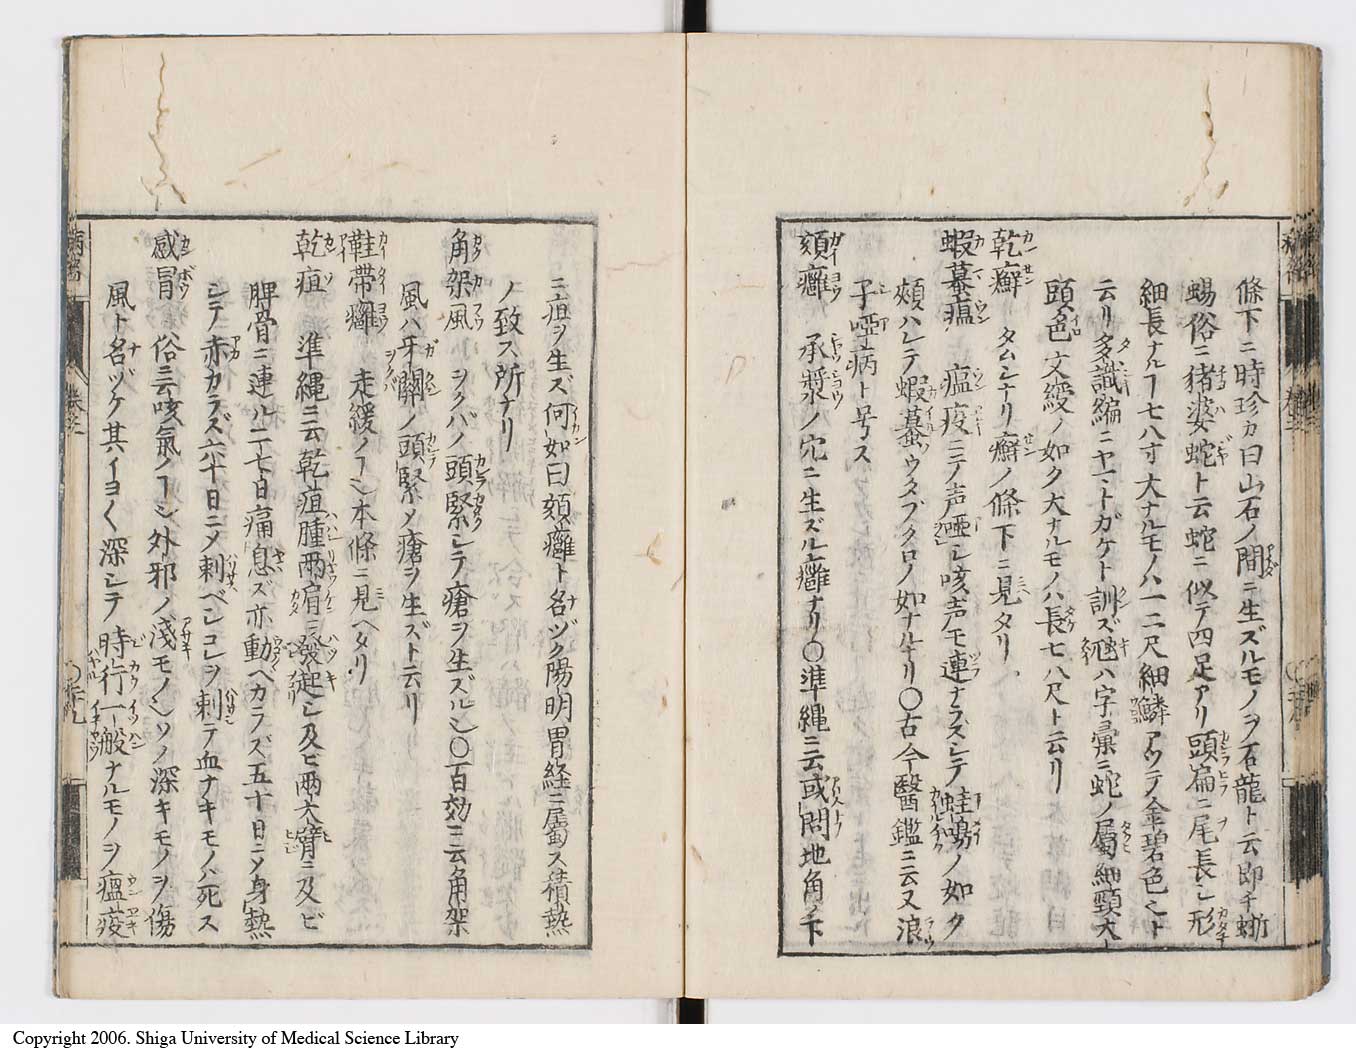 條下ニ時珍カ曰山石ノ間ニ生ズルモノヲ石龍ト云即チ蜥
蜴俗ニ猪婆蛇ト云蛇ニ似テ四足アリ頭扁ニ尾長シ形
細長ナルヿ七八寸大ナルモノハ一二尺細鱗アツテ金碧色ミト
云リ多識編ニヤマトガケト訓ズ虺ハ字彙ニ蛇ノ屬細頸大
頭色文綬ノ如ク大ナルモノハ長七八尺ト云リ
乾癬 タムシナリ癬ノ條下ニ見タリ
蝦蟇瘟 瘟疫ニノ声啞シ咳声モ連ナラズシテ蛙鳴ノ如ク
頰ハレテ蝦蟇ウタブクロノ如ナルナリ〇古今醫鑑ニ云又浪
子啞病ト号ス
頦癰 承漿ノ穴ニ生ズル癰ナリ〇準繩ニ云或問地角ノ下
ニ疽ヲ生ズ何如曰頦癰ト名ヅク陽明胃経ニ屬ス積熱
ノ致ス所ナリ
角架風 ヲクバノ頭緊シテ瘡ヲ生ズルシ〇百効ニ云角架
風ハ牙關ノ頭緊メ瘡ヲ生ズト云リ
鞋帶癰 走緩ノヿシ本條ニ見ヘタリ
乾疽 準縄ニ云乾疽腫兩肩ニ發起シ及ビ兩大臂ニ及ビ
脾骨ニ連ル二七日痛息ズ亦動ベカラズ五十日ニメ身熱
シテ赤カラズ六十日ニメ刺ベシコレヲ刺テ血ナキモノハ死ス
感冒 俗ニ云咳氣ノヿシ外邪ノ淺モノシソノ深キモノヲ傷
風ト名ヅケ其イヨく深シテ時行一般ナルモノヲ瘟疫
Copyright 2006. Shiga University of Medical Science Library